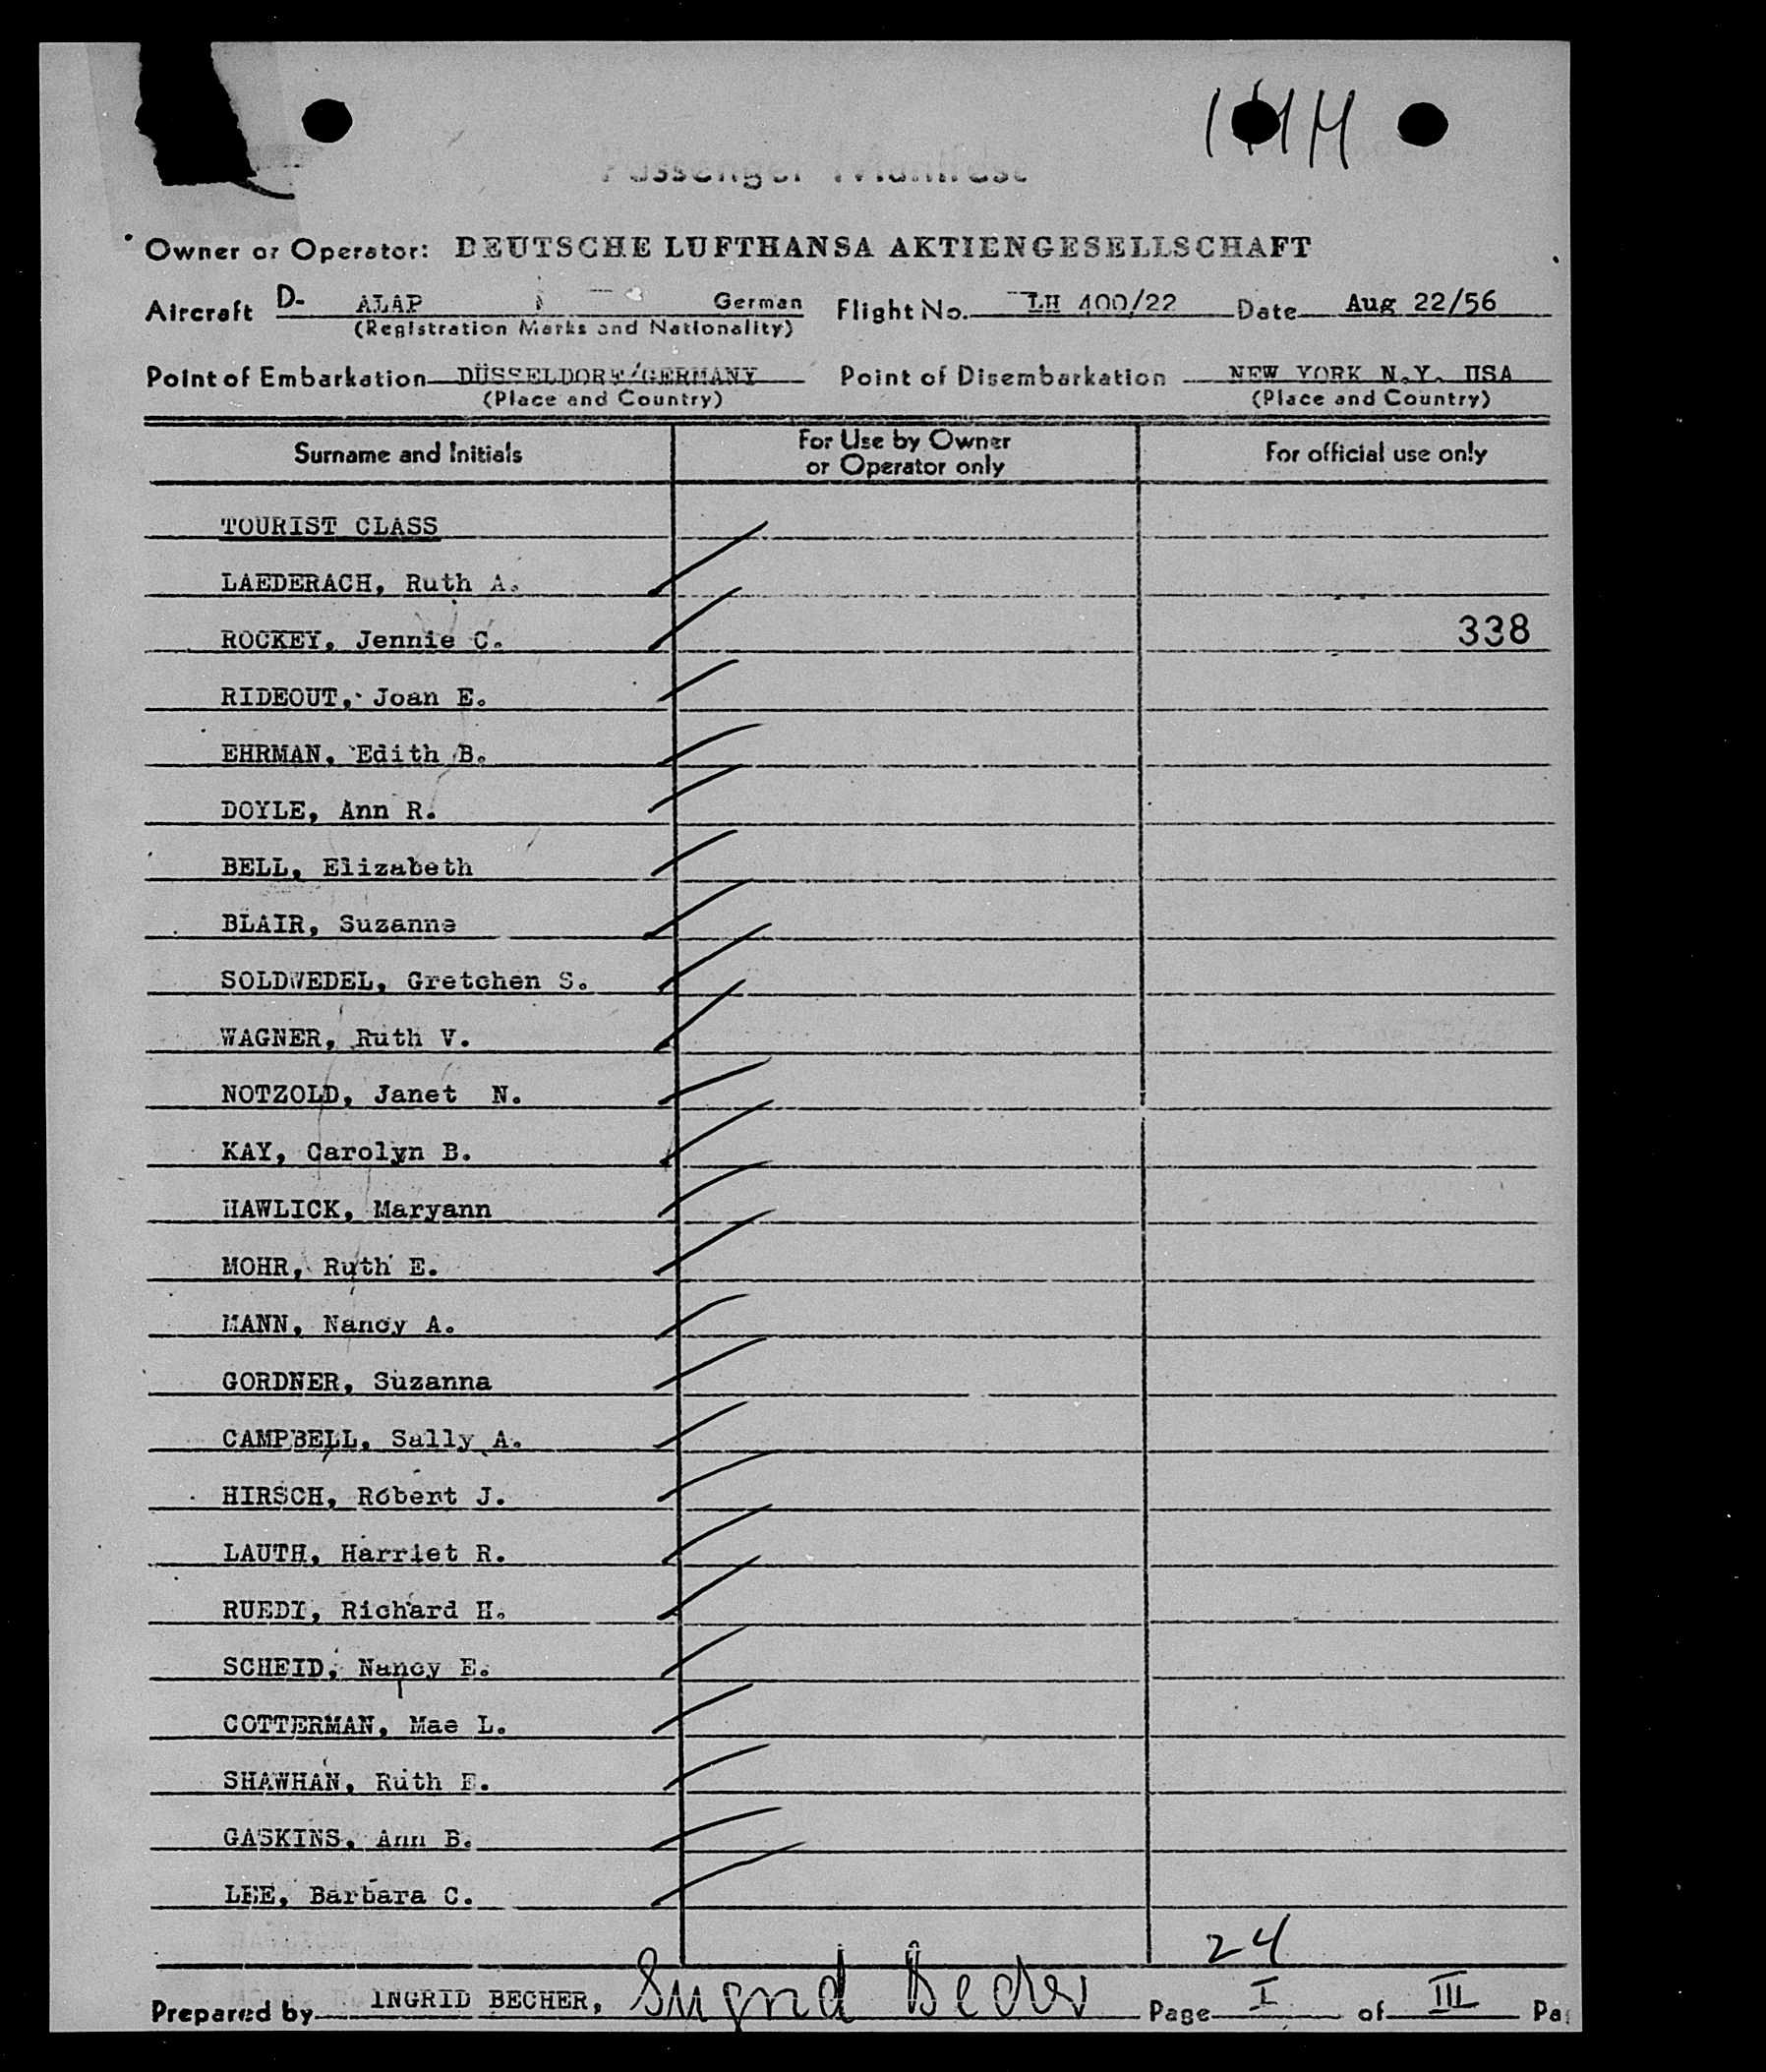 Passenger Manifest
Owner or Operator: DEUTSCHE LUFTHANSA AKTIENGESELLSCHAFT
Aircraft D- ALAP German Flight No. LH 400/22 Date Aug 22/56
(Registration Marks and Nationality)
Point of Embarkation DÜSSELDORF/GERMANY Point of Disembarkation NEW YORK N.Y. USA
(Place and Country) (Place and Country)
Surname and Initials For Use by Owner or Operator only For official use only
TOURIST CLASS
LAEDERACH, Ruth A.
ROCKEY, Jennie C. 338
RIDEOUT, Joan E.
EHRMAN, Edith B.
DOYLE, Ann R.
BELL, Elizabeth
BLAIR, Suzanne
SOLDWEDEL, Gretchen S.
WAGNER, Ruth V.
NOTZOLD, Janet N.
KAY, Carolyn B.
HAWLICK, Maryann
MOHR, Ruth E.
MANN, Nancy A.
GORDNER, Suzanna
CAMPBELL, Sally A.
HIRSCH, Robert J.
LAUTH, Harriet R.
RUEDI, Richard H.
SCHEID, Nancy E.
COTTERMAN, Mae L.
SHAWHAN, Ruth E.
GASKINS, Ann B.
LEE, Barbara C.
24
Prepared by INGRID BECHER, Ingrid Becher Page I of III Pa